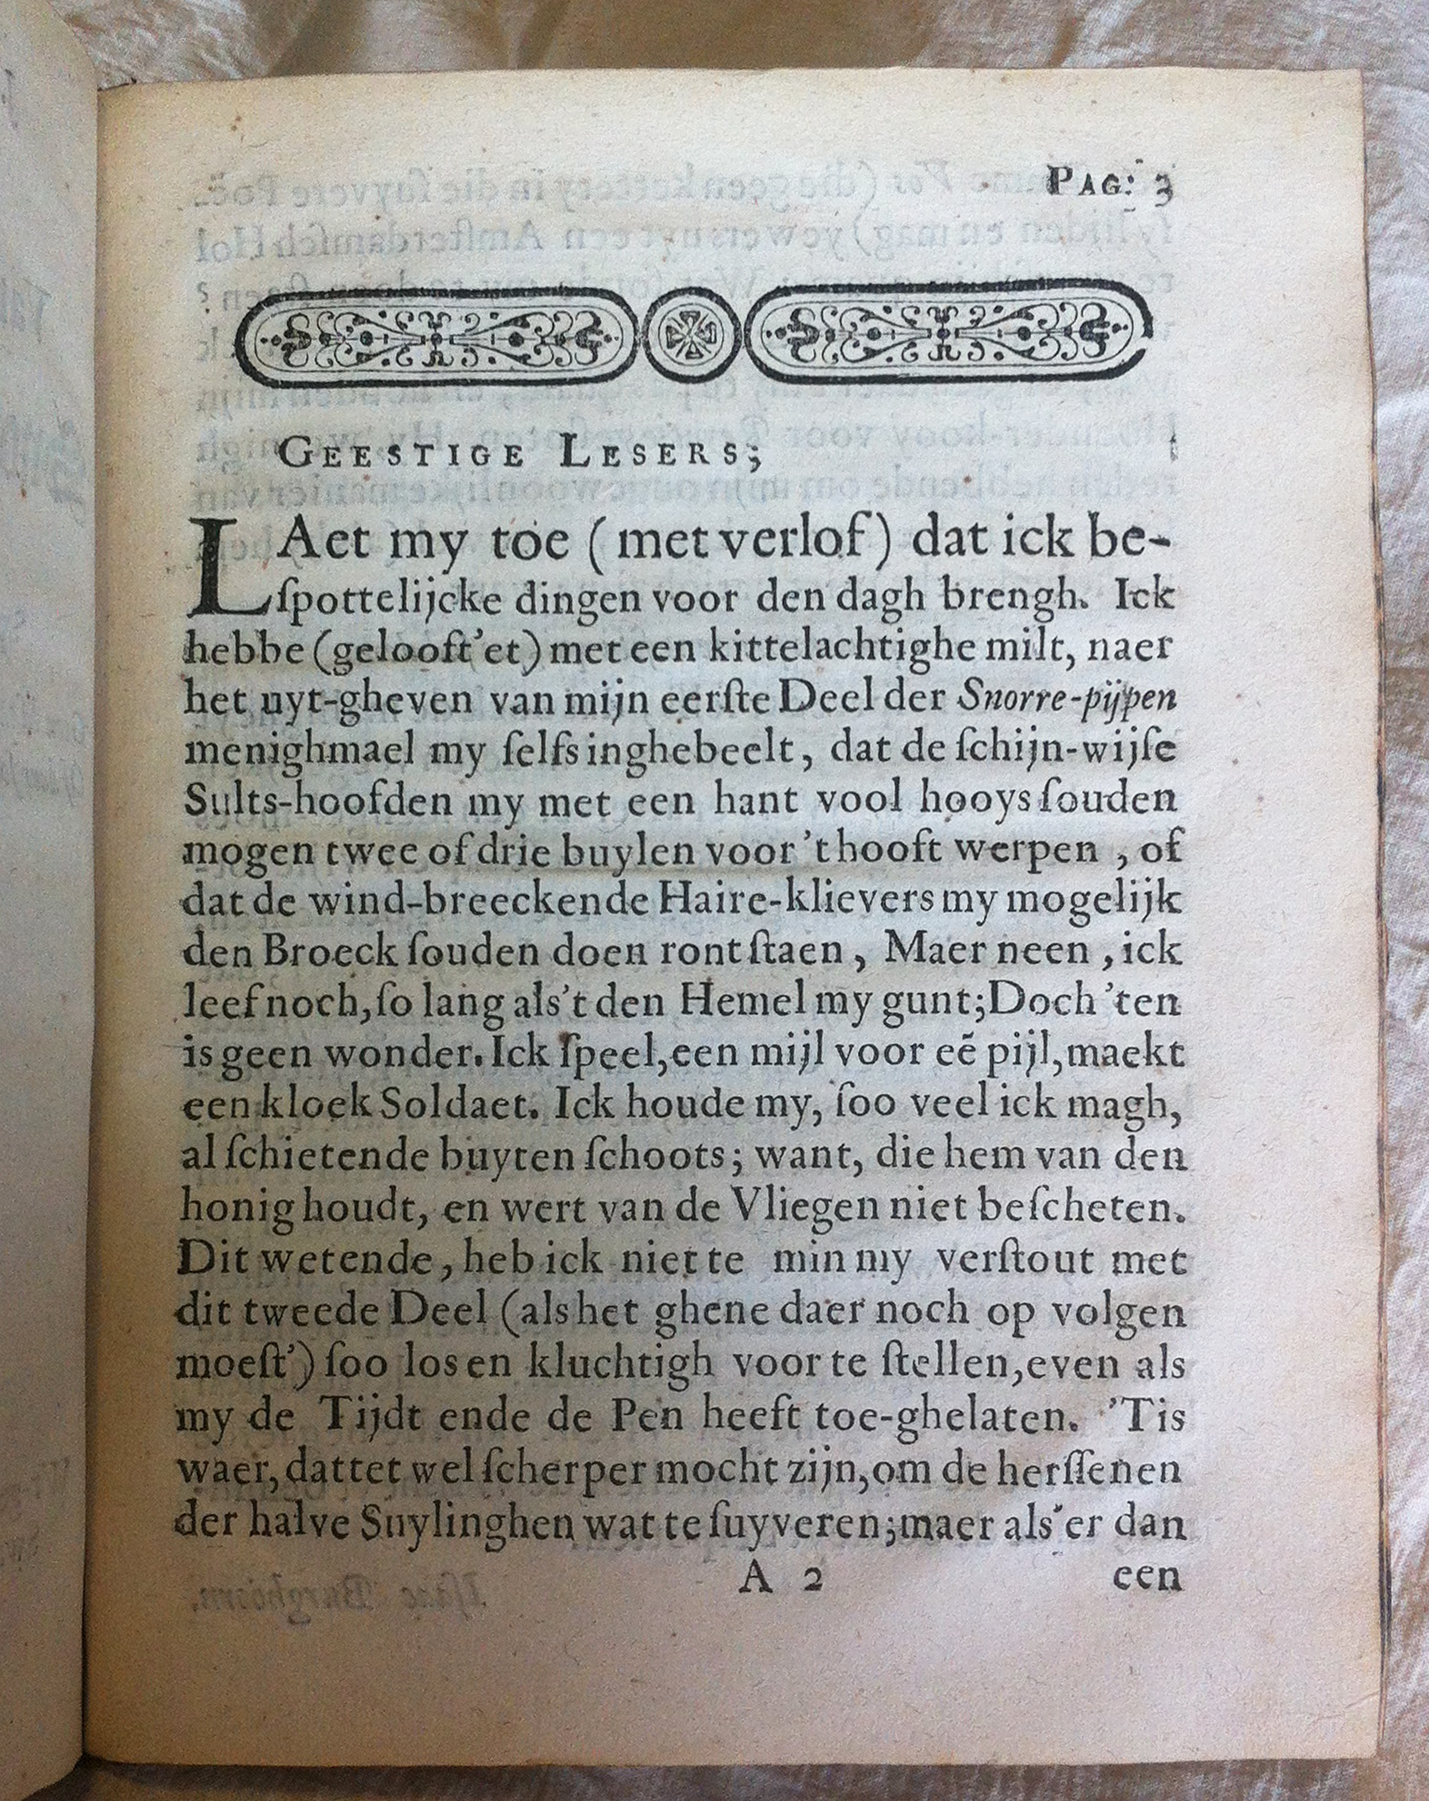 PAG: 3
GEESTIGE LESERS;
LAet my toe (met verlof) dat ick be-
ſpottelijcke dingen voor den dagh brengh. Ick
hebbe (gelooft'et) met een kittelachtighe milt, naer
het uyt-gheven van mijn eerſte Deel der Snorre-pijpen
menighmael my ſelfs inghebeelt, dat de ſchijn-wijſe
Sults-hoofden my met een hant vool hooys ſouden
mogen twee of drie buylen voor 't hooft werpen, of
dat de wind-breeckende Haire-klievers my mogelijk
den Broeck ſouden doen ront ſtaen, Maer neen, ick
leef noch, ſo lang als't den Hemel my gunt; Doch 'ten
is geen wonder. Ick ſpeel, een mijl voor eē pijl, maekt
een kloek Soldaet. Ick houde my, ſoo veel ick magh,
al ſchietende buyten ſchoots; want, die hem van den
honig houdt, en wert van de Vliegen niet beſcheten.
Dit wetende, heb ick niet te min my verſtout met
dit tweede Deel (als het ghene daer noch op volgen
moeſt') ſoo los en kluchtigh voor te ſtellen, even als
my de Tijdt ende de Pen heeft toe-ghelaten. 'Tis
waer, dattet wel ſcherper mocht zijn, om de herſſenen
der halve Suylinghen wat te ſuyveren; maer als'er dan
A 2 een